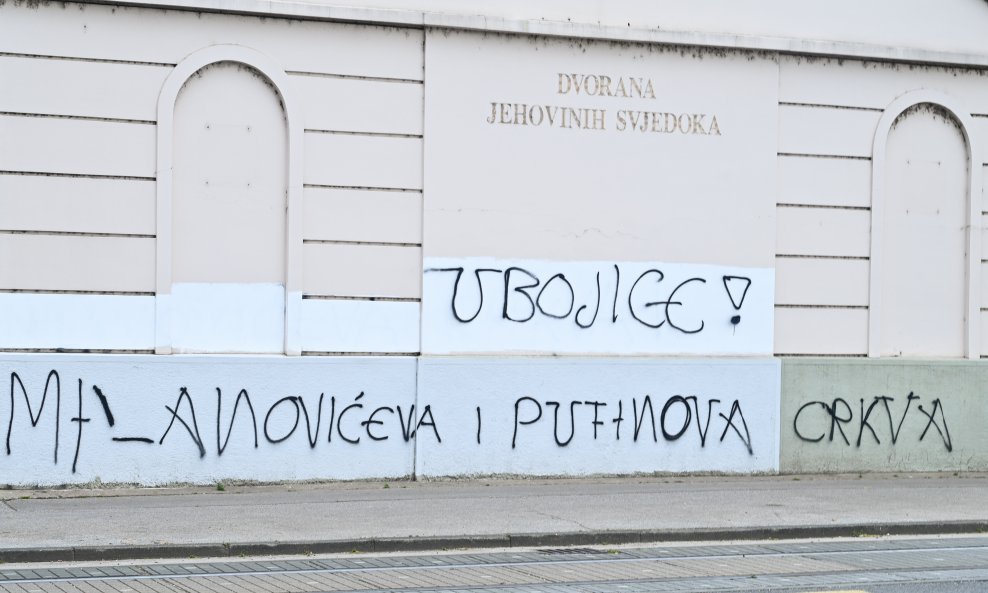 DVORANA
JEHOVINIH SVJEDOKA
UBOJICE!
MILANOVIĆEVA I PUTINOVA CRKVA